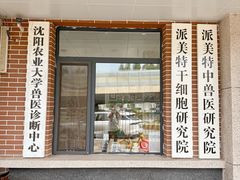 沈阳农业大学兽医诊断中心
派美特干细胞研究院
派美特中兽医研究院